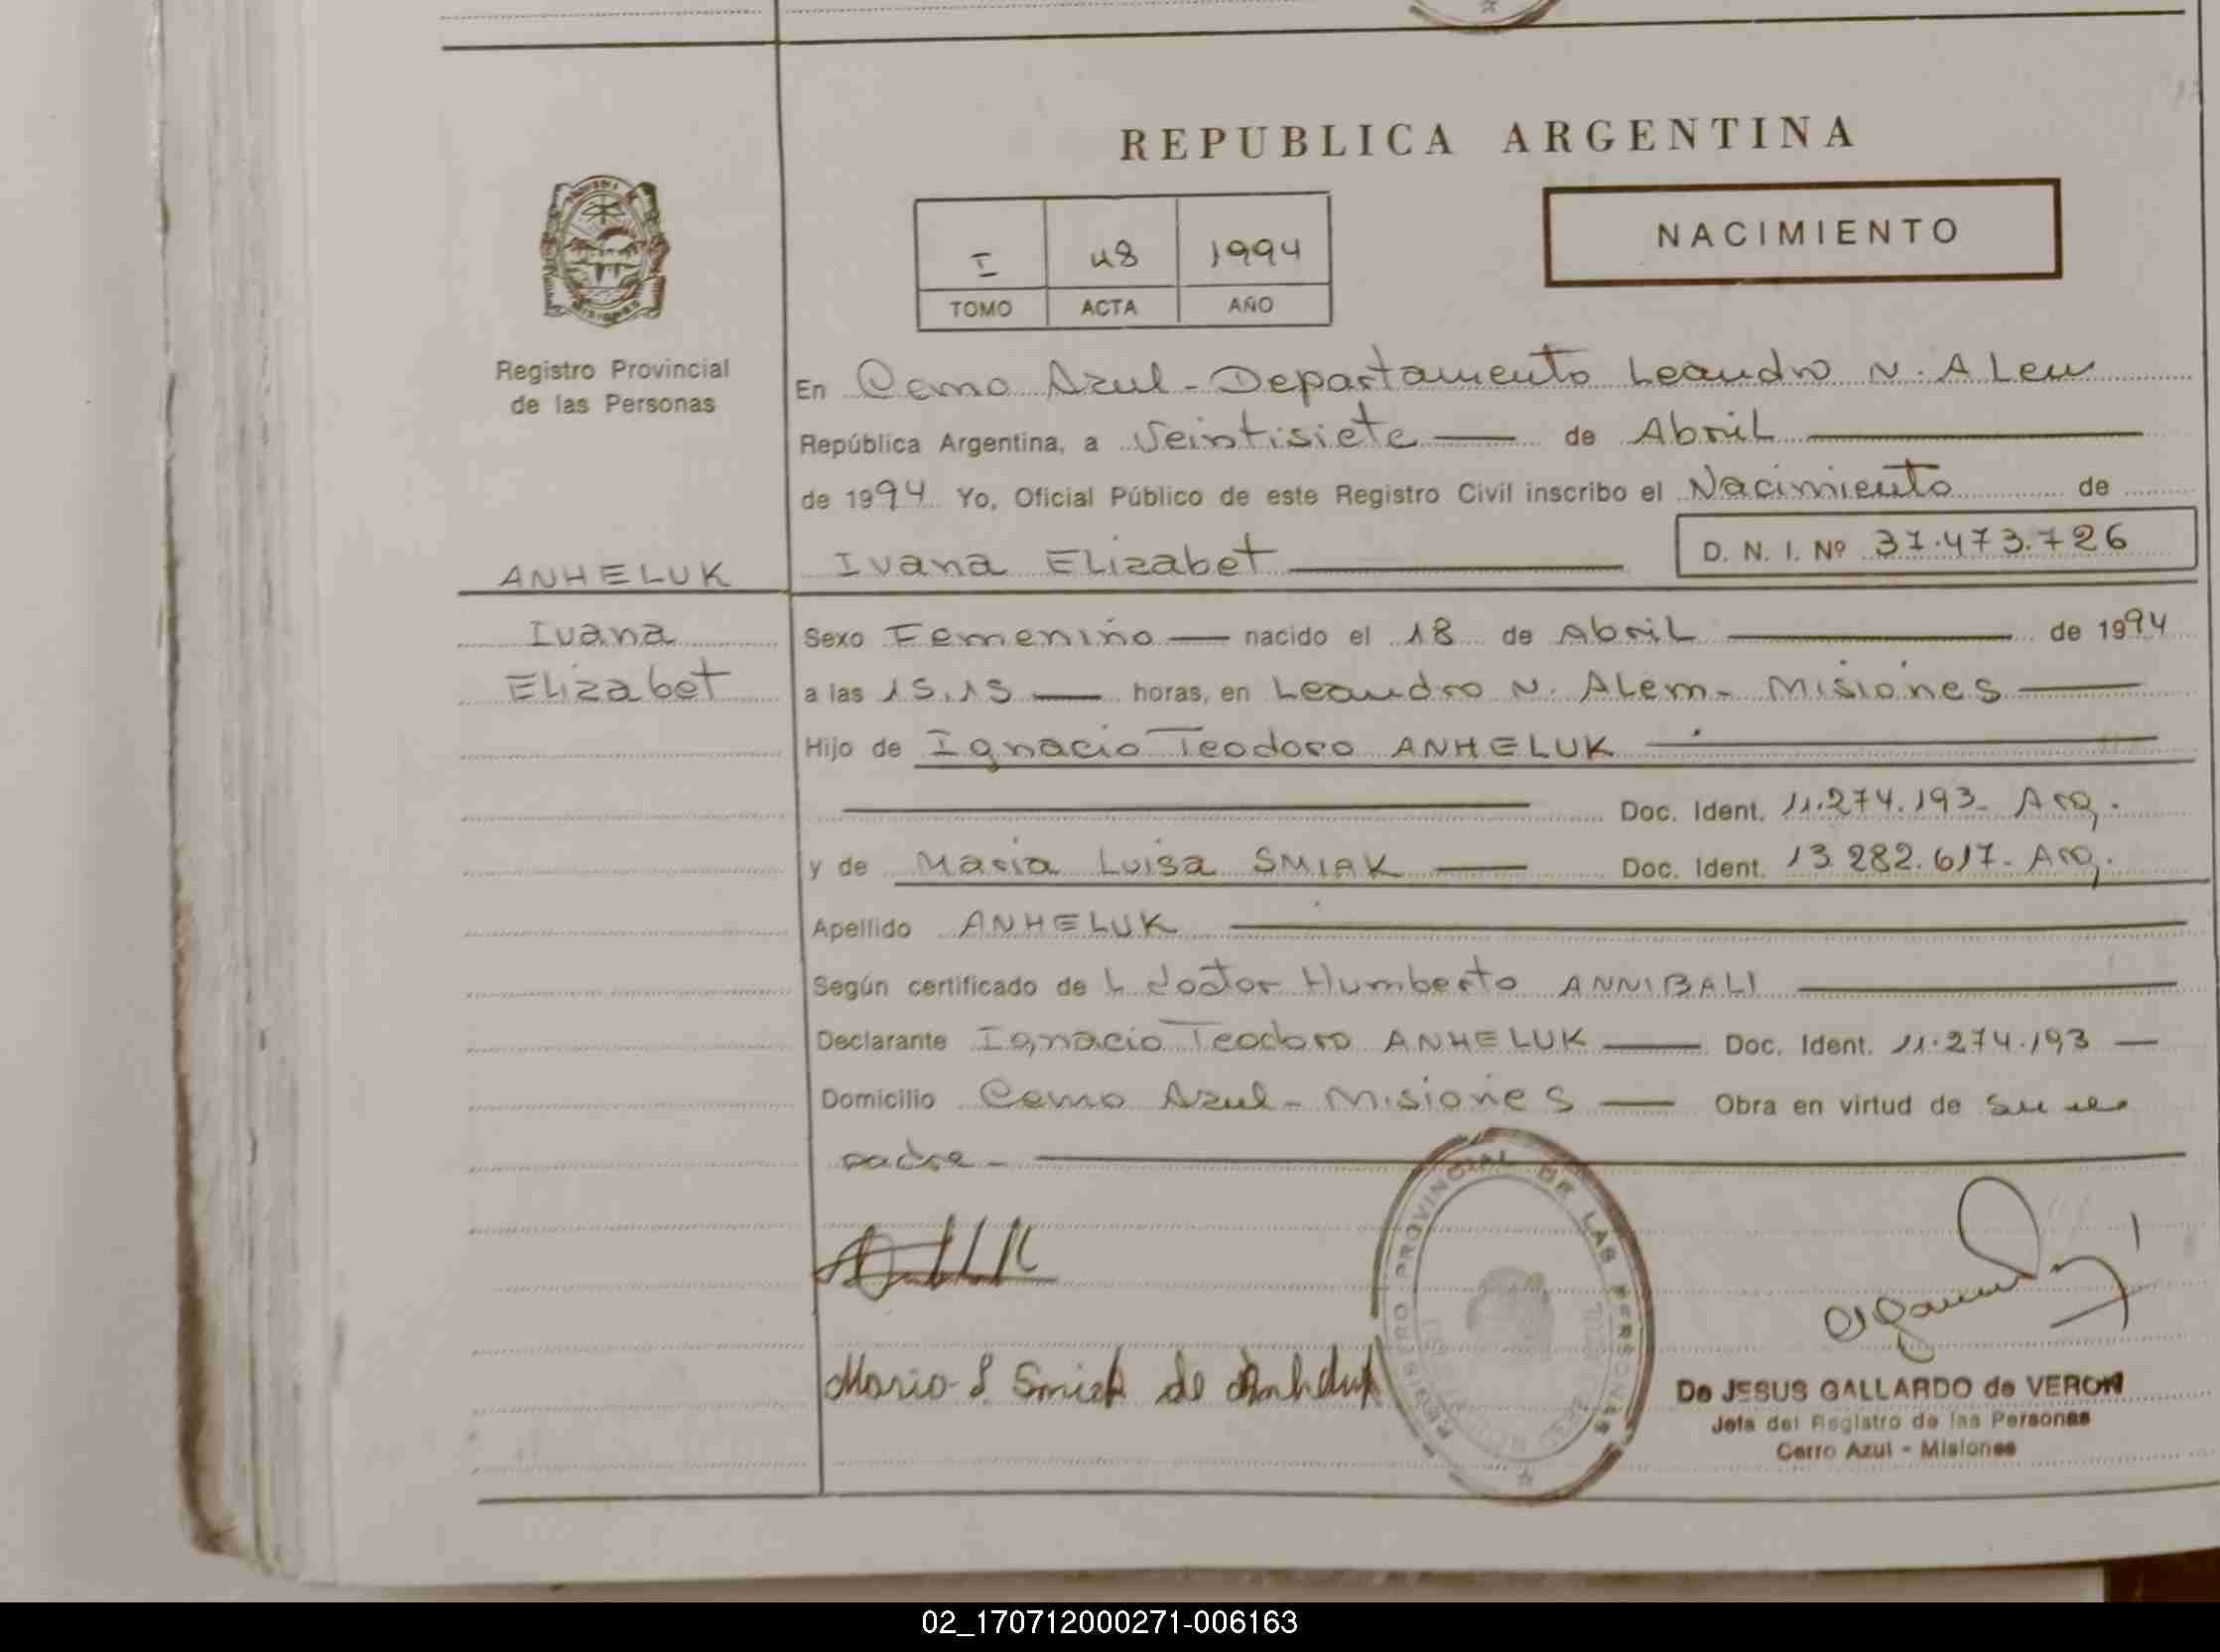 REPUBLICA ARGENTINA
NACIMIENTO
I 48 1994
TOMO ACTA AÑO
Registro Provincial
de las Personas
En Cerro Azul - Departamento Leandro N. Alem
República Argentina, a Veintisiete — de Abril
de 1994 Yo, Oficial Público de este Registro Civil inscribo el Nacimiento de
ANHELUK Ivana Elizabet D. N. I. Nº 37.473.726
Ivana
Elizabet
Sexo Femenino — nacido el 18 de Abril — de 1994
a las 15.15 — horas, en Leandro N. Alem - Misiones —
Hijo de Ignacio Teodoro ANHELUK —
Doc. Ident. 11.274.193 - Arg.
y de Maria Luisa SMIAK — Doc. Ident. 13.282.617 - Arg.
Apellido ANHELUK
Según certificado de L doctor Humberto ANNIBALI
Declarante Ignacio Teodoro ANHELUK — Doc. Ident. 11.274.193 —
Domicilio Cerro Azul - Misiones — Obra en virtud de Ser el
padre -
REGISTRO PROVINCIAL DE LAS PERSONAS
Maria L. Smiak de Anheluk
De JESUS GALLARDO de VERON
Jefa del Registro de las Personas
Cerro Azul - Misiones
02_170712000271-006163